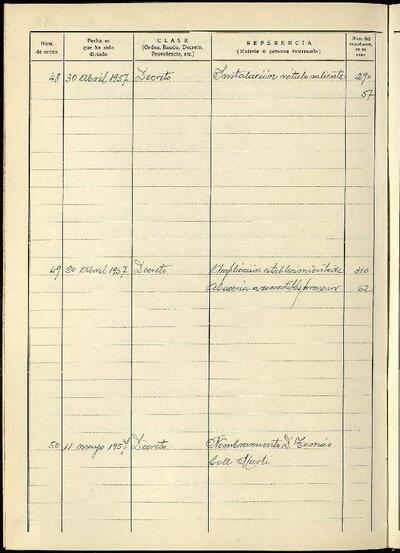 Núm. de orden
Fecha en que ha sido dictado
CLASE
(Orden, Bando, Decreto, Providencia, etc.)
REFERENCIA
(Materia o persona interesada)
Núm. del expediente, en su caso
48 30 Abril 1957 Decreto Instalación rotulo saliente 290
57
49 30 Abril 1957 Decreto Ampliación establecimiento de 310
62
50 11 mayo 1957 Decreto Nombramiento D. Tomás
Coll Martí